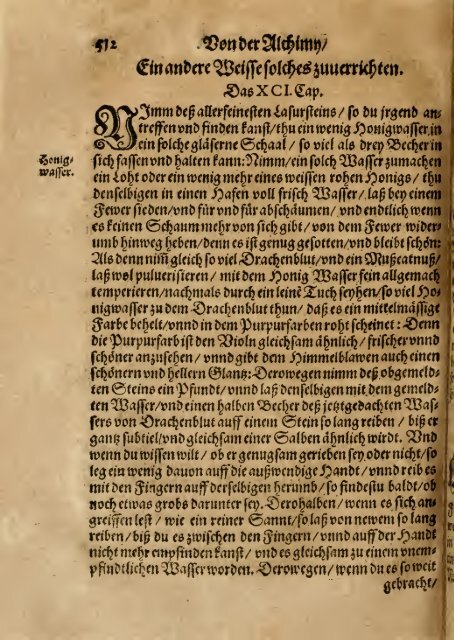 512 Von der Alchimy/
Ein andere Weisse solches zuuerrichten.
Das XCI. Cap.
NImm deß allerfeinesten Lasursteins/ so du jrgend an-
treffen vnd finden kanst/ thu ein wenig Honigwasser in
ein solche gläserne Schaal/ so viel als drey Becher in
Honig-
wasser.
sich fassen vnd halten kann: Nimm/ ein solch Wasser zumachen
ein Loht oder ein wenig mehr eines weissen rohen Honigs/ thu
denselbigen in einen Hafen voll frisch Wasser/ laß bey einem
Fewer sieden/ vnd für vnd für abschäumen/ vnd endtlich wenn
es keinen Schaum mehr von sich gibt/ von dem Fewer wider-
umb hinweg heben/ denn es ist genug gesotten/ vnd bleibt schön:
Als denn nim̃ gleich so viel Drachenblut/ vnd ein Mußcatnuß/
laß wol puluerisieren/ mit dem Honig Wasser fein allgemach
temperieren/ nachmals durch ein leinē Tuch seyhen/ so viel Ho-
nigwasser zu dem Drachenblut thun/ daß es ein mittelmässige
Farbe behelt/ vnnd in dem Purpurfarben roht scheinet: Denn
die Purpurfarb ist den Violn gleichsam ähnlich/ frischer vnnd
schöner anzusehen/ vnnd gibt dem Himmelblawen auch einen
schönern vnd hellern Glantz: Derowegen nimm deß obgemeld-
ten Steins ein Pfundt/ vnnd laß denselbigen mit dem gemeld-
ten Wasser/ vnd einen halben Becher deß jetztgedachten Was-
sers von Drachenblut auff einem Stein so lang reiben/ biß er
gantz subtiel/ vnd gleichsam einer Salben ähnlich wirdt. Vnd
wenn du wissen wilt/ ob er genugsam gerieben sey oder nicht/ so
leg ein wenig dauon auff die außwendige Handt/ vnnd reib es
mit den Fingern auff derselbigen herumb/ so findestu baldt/ ob
noch etwas grobs darunter sey. Derohalben/ wenn es sich an-
greiffen lest/ wie ein reiner Sannt/ so laß von newem so lang
reiben/ biß du es zwischen den Fingern/ vnnd auff der Handt
nicht mehr empfinden kanst/ vnd es gleichsam zu einem vnem-
pfindtlichen Wasser worden. Derowegen/ wenn du es so weit
gebracht/